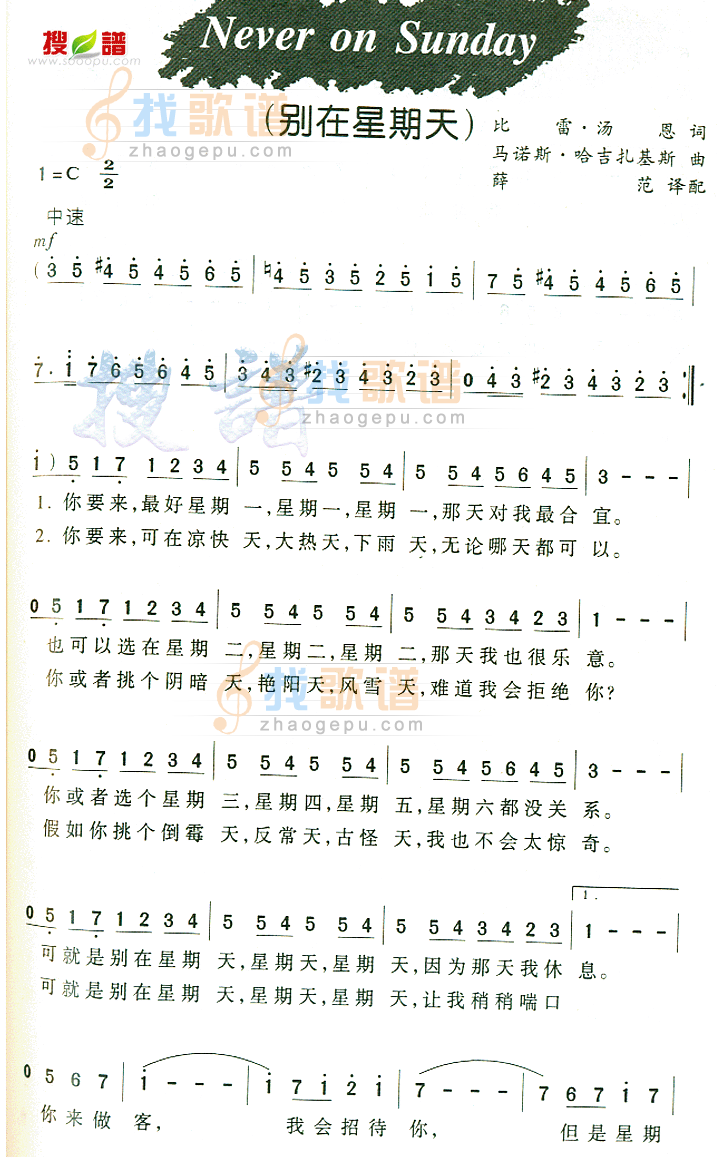 搜谱
www.sooopu.com
Never on Sunday
(别在星期天)
找歌谱
zhaogepu.com
比雷·汤恩 词
马诺斯·哈吉扎基斯 曲
薛范 译配
1=C 2/2
中速
mf
(3 5 #4 5 4 5 6 5 | ♮4 5 3 5 2 5 1 5 | 7 5 #4 5 4 5 6 5 |
7· 1 7 6 5 6 4 5 | 3 4 3 #2 3 4 3 2 3 | 0 4 3 #2 3 4 3 2 3 :|
搜谱
找歌谱
zhaogepu.com
i) 5 1 7 1 2 3 4 | 5 5 4 5 5 4 | 5 5 4 5 6 4 5 | 3 - - - |
1. 你要来,最好星期 一,星期一,星期 一,那天对我最合 宜。
2. 你要来,可在凉快 天,大热天,下雨 天,无论哪天都可 以。
0 5 1 7 1 2 3 4 | 5 5 4 5 5 4 | 5 5 4 3 4 2 3 | 1 - - - |
也可以选在星期 二,星期二,星期 二,那天我也很乐 意。
你或者挑个阴暗 天,艳阳天,风雪 天,难道我会拒绝 你?
找歌谱
zhaogepu.com
0 5 1 7 1 2 3 4 | 5 5 4 5 5 4 | 5 5 4 5 6 4 5 | 3 - - - |
你或者选个星期 三,星期四,星期 五,星期六都没关 系。
假如你挑个倒霉 天,反常天,古怪 天,我也不会太惊 奇。
1.
0 5 1 7 1 2 3 4 | 5 5 4 5 5 4 | 5 5 4 3 4 2 3 | 1 - - - |
可就是别在星期 天,星期天,星期 天,因为那天我休 息。
可就是别在星期 天,星期天,星期 天,让我稍稍喘口
0 5 6 7 | i - - - | i 7 i 2 i | 7 - - - | 7 6 7 i 7 |
你来做 客, 我会招待 你, 但是星期